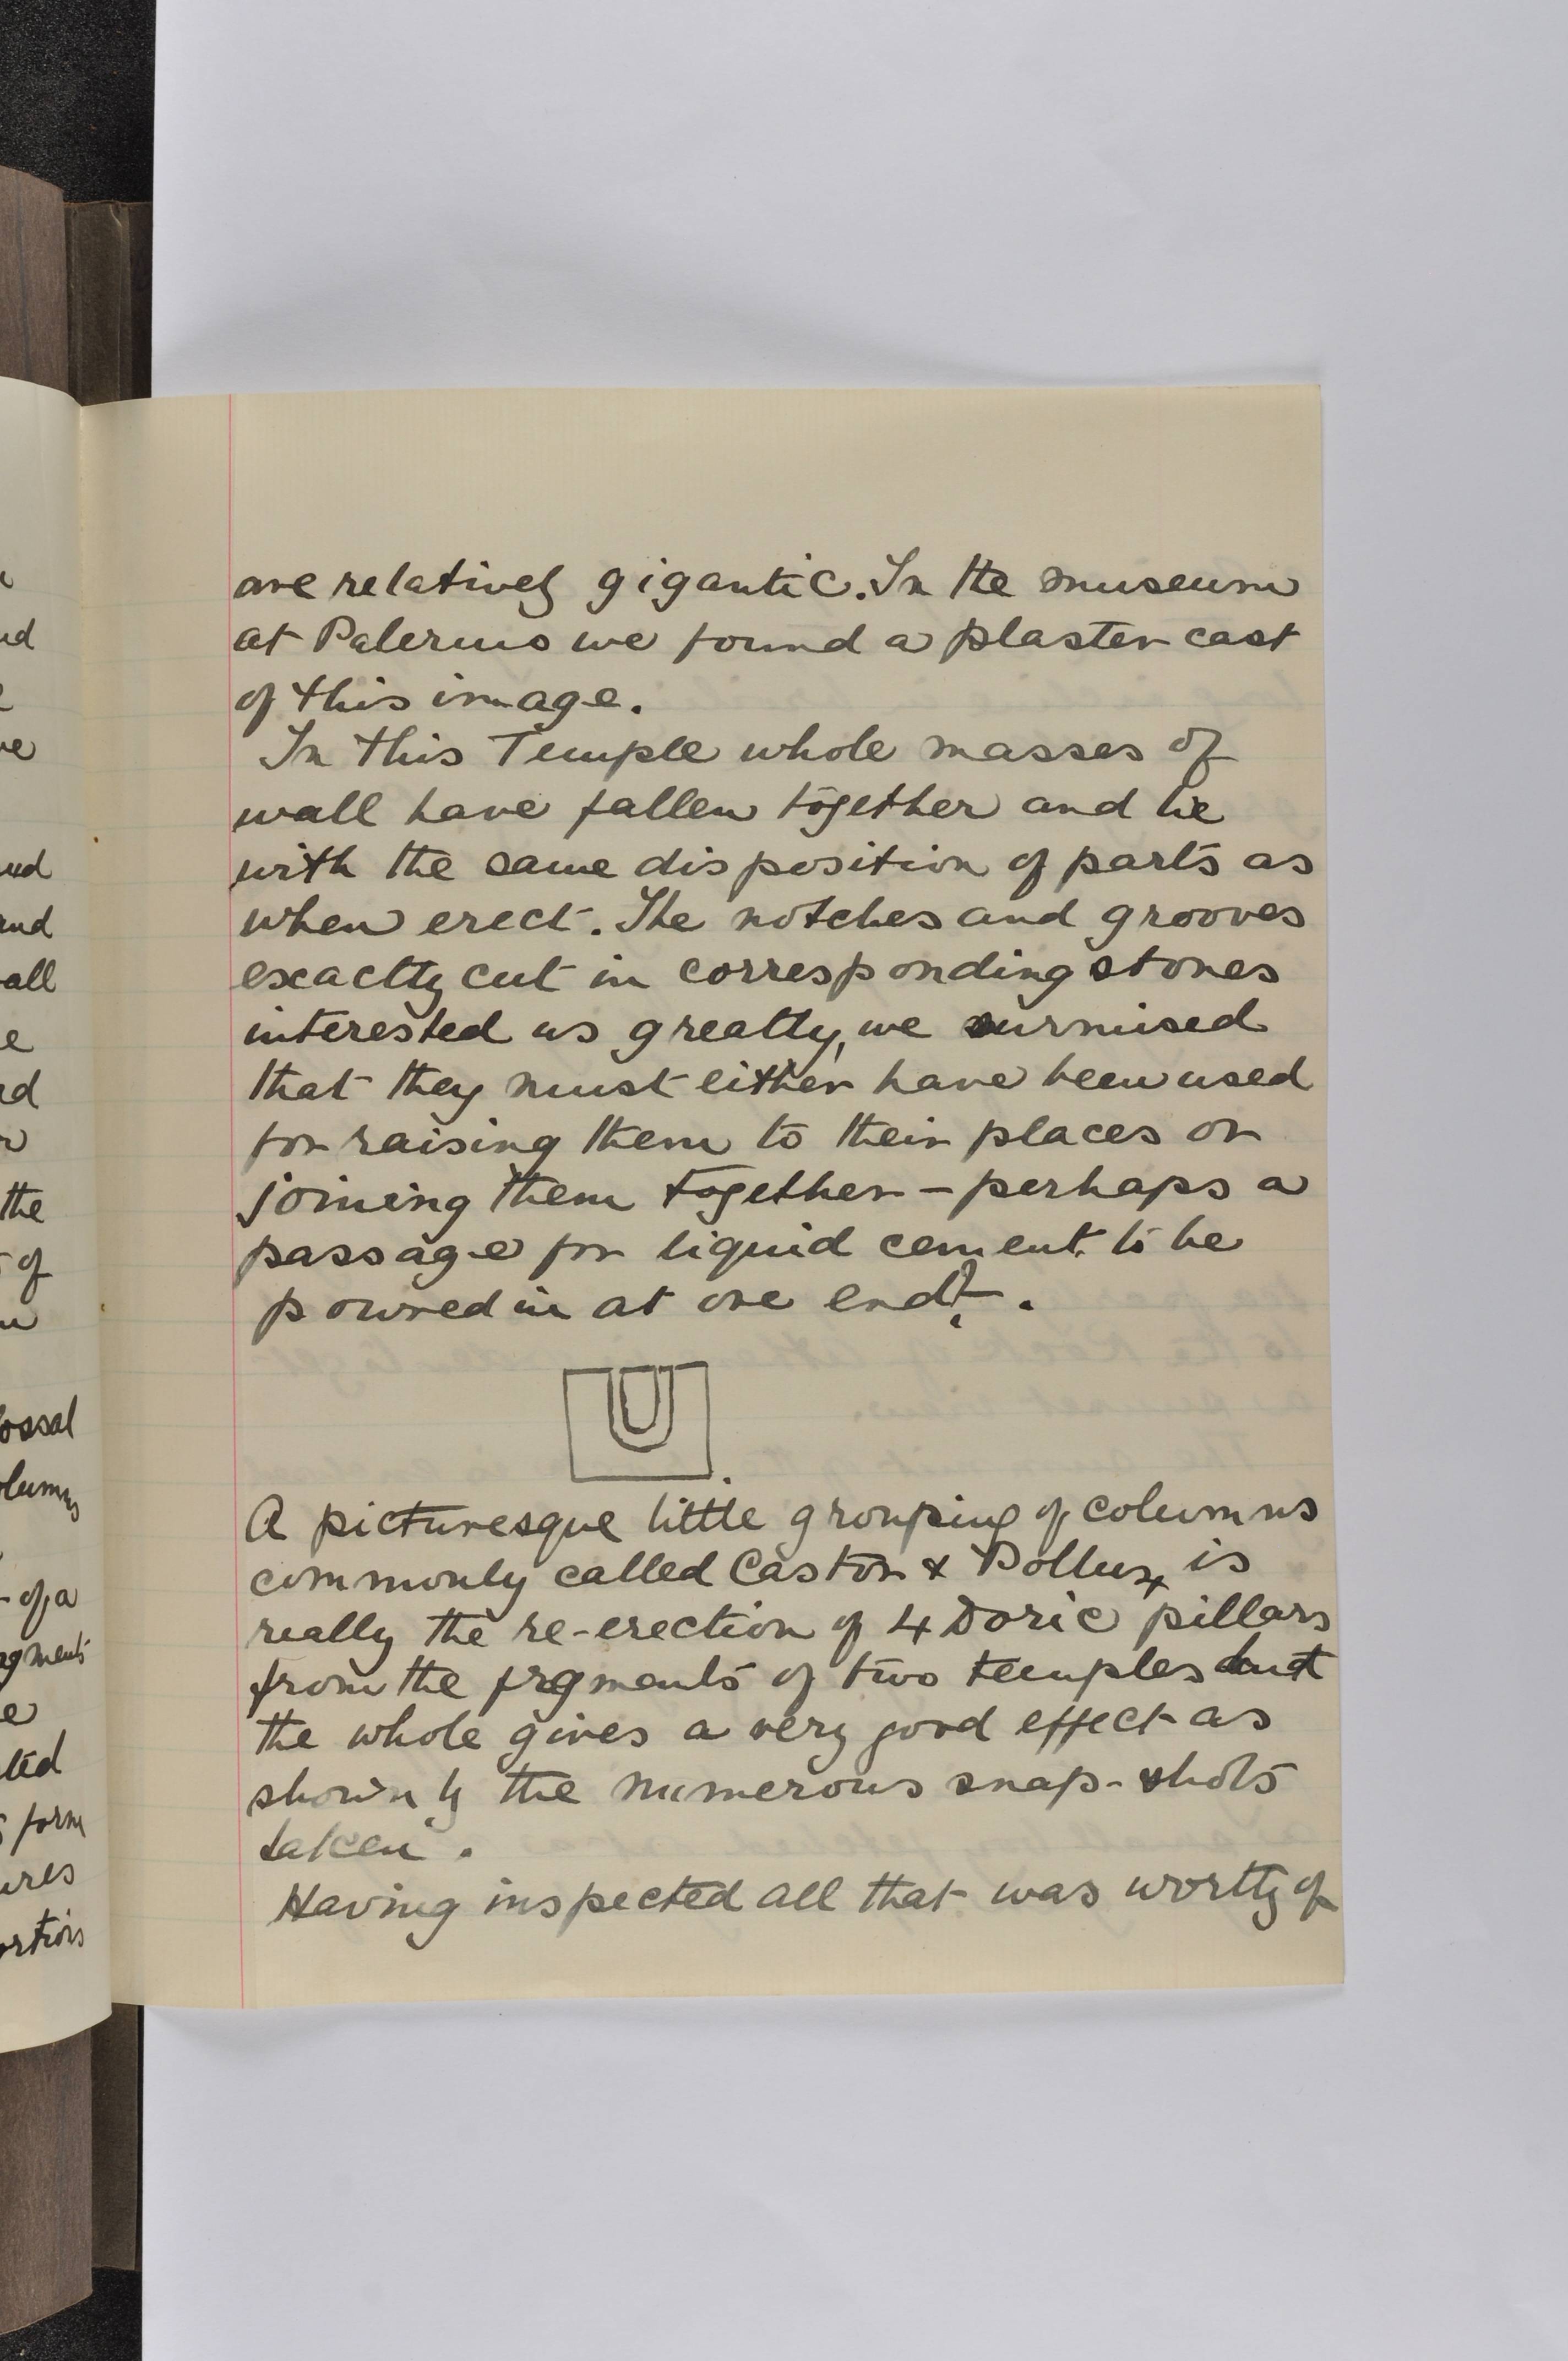 are relatively gigantic. In the museum
at Palermo we found a plaster cast
of this image.
In this Temple whole masses of
wall have fallen together and lie
with the same disposition of parts as
when erect. The notches and grooves
exactly cut in corresponding stones
interested us greatly, we surmised
that they must either have been used
for raising them to their places or
joining them together - perhaps a
passage for liquid cement to be
poured in at one end? .
A picturesque little grouping of columns
commonly called Castor & Pollux, is
really the re-erection of 4 Doric pillars
from the frgments of two temples but
the whole gives a very good effect as
shown by the numerous snap-shots
taken.
Having inspected all that was worthy of